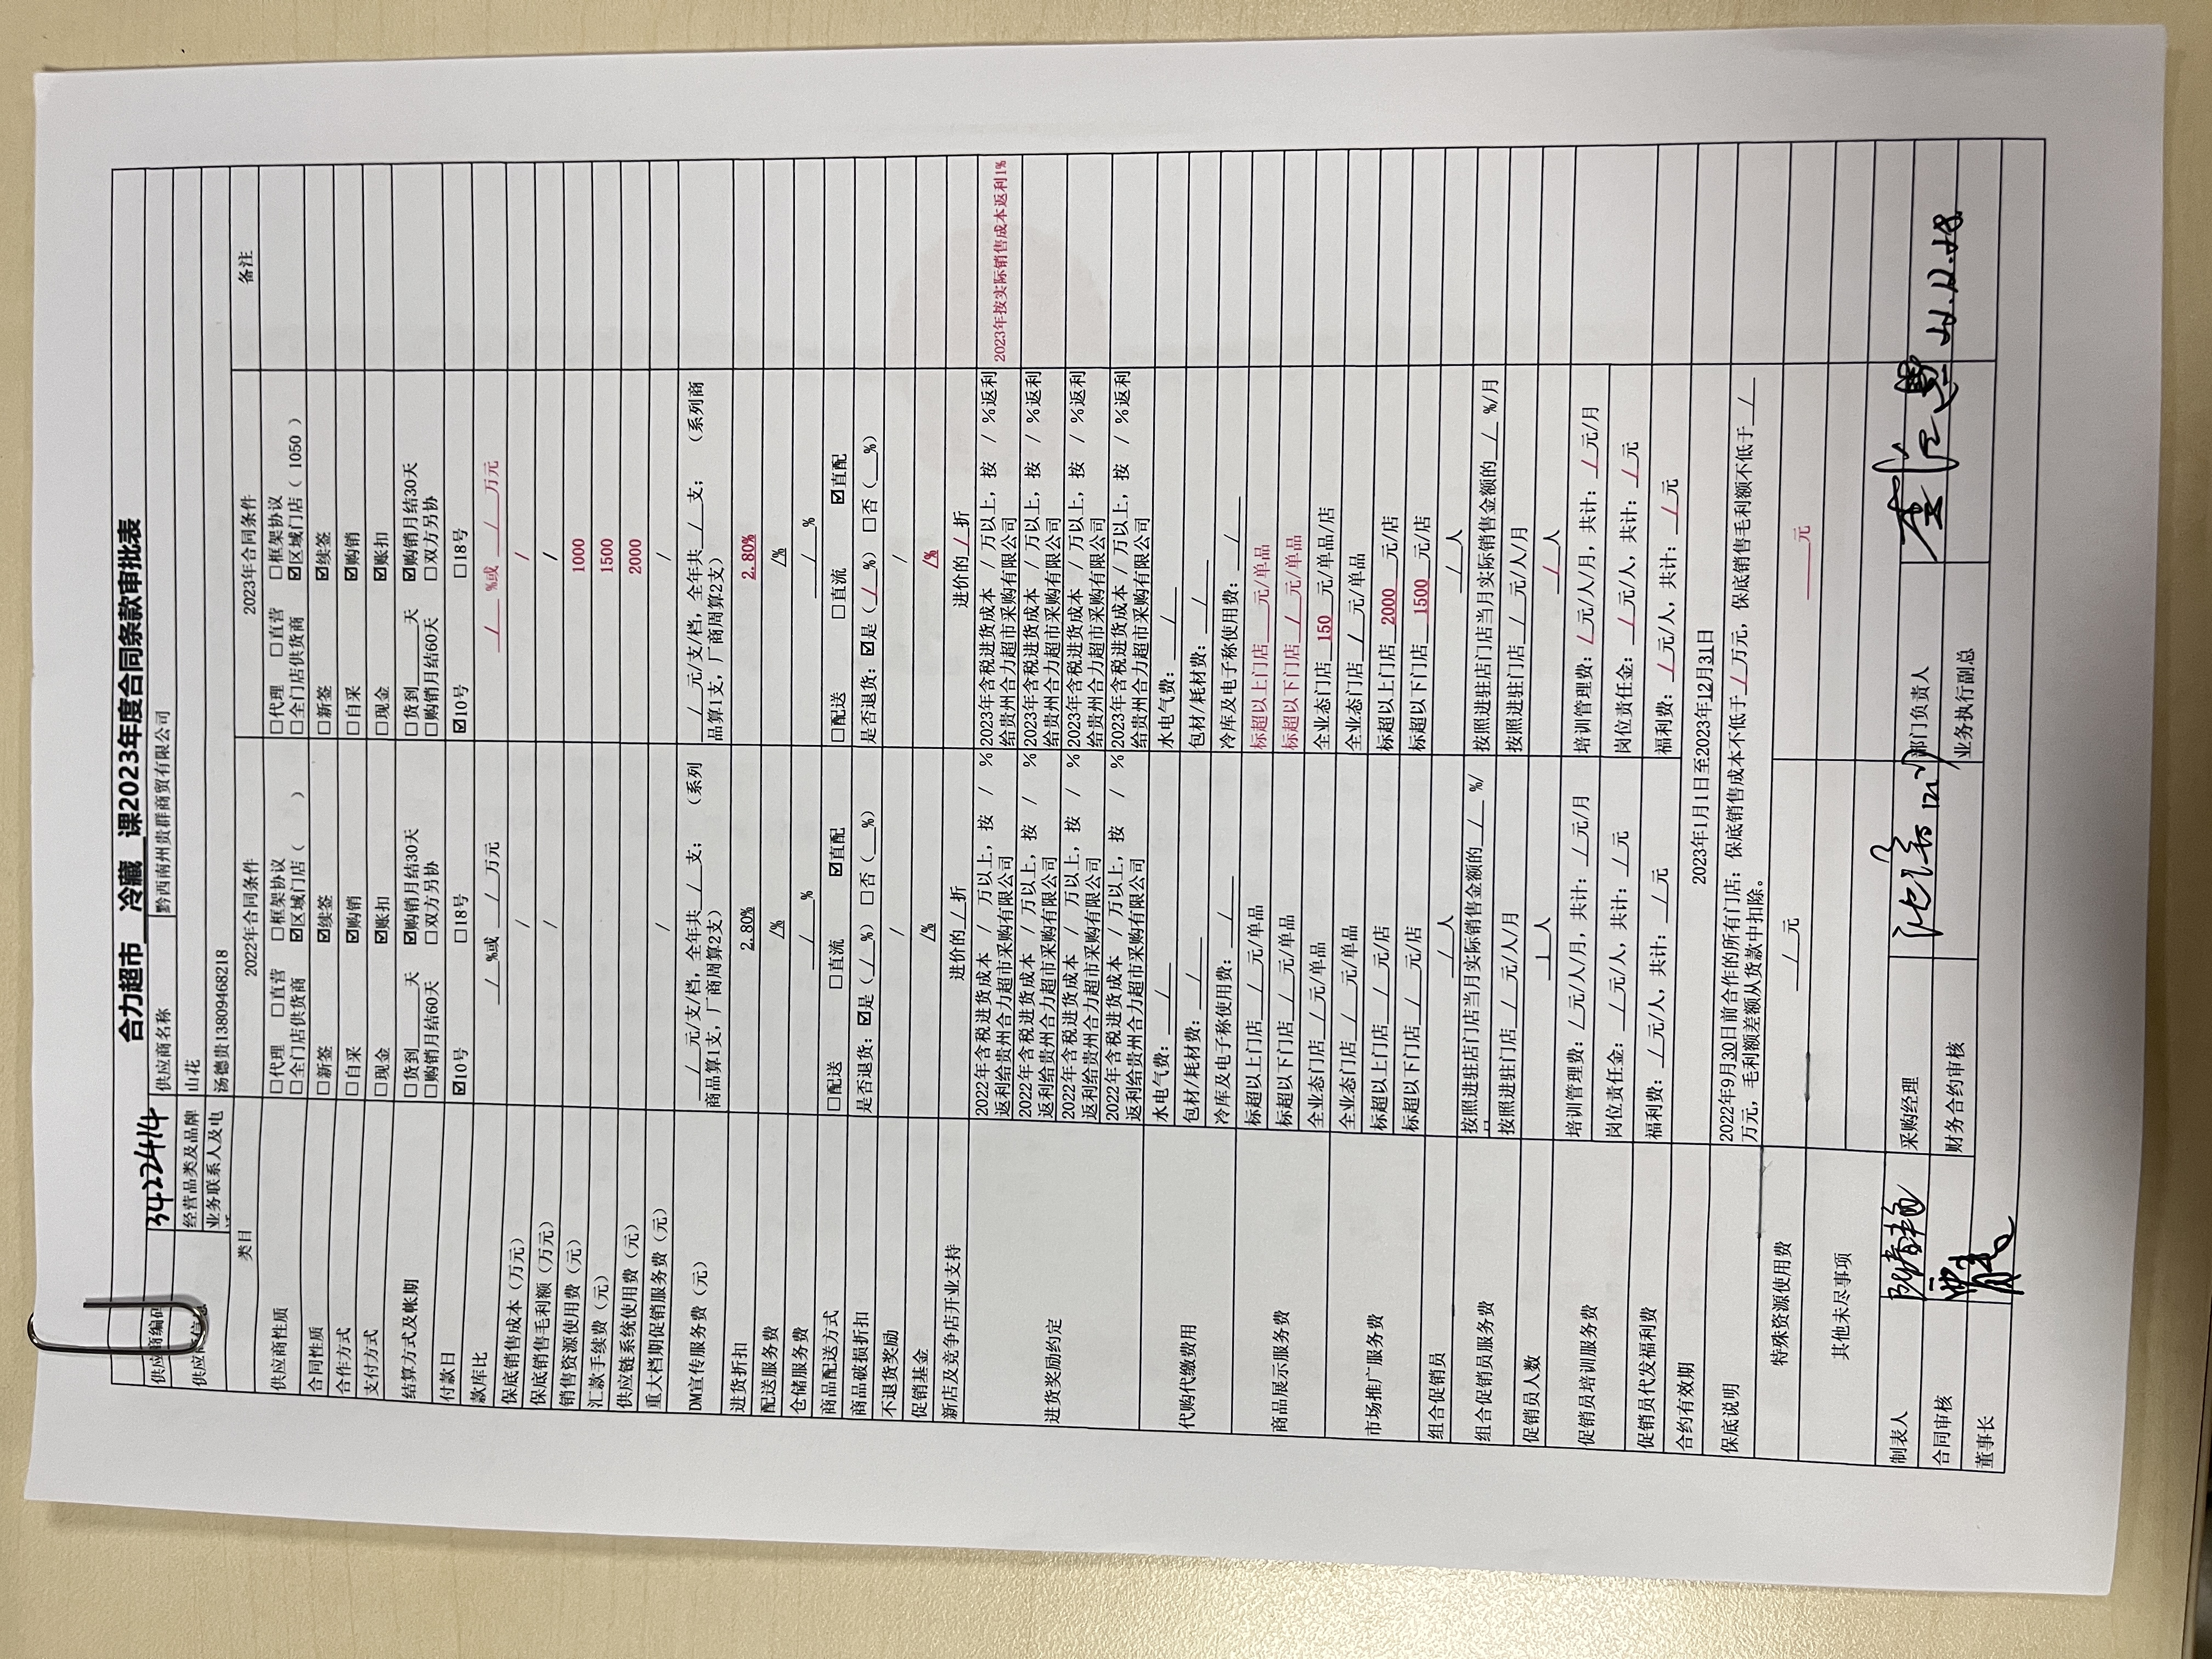 合力超市 冷藏 课2023年度合同条款审批表
供应商编码 3422414 供应商名称 黔西南州贵群商贸有限公司
经营品类及品牌 山花
业务联系人及电 汤德贵13809468218
类目 2022年合同条件 2023年合同条件 备注
供应商性质 □代理 □直营 □框架协议 □代理 □直营 □框架协议
□全门店供货商 ☑区域门店( ) □全门店供货商 ☑区域门店( 1050 )
合同性质 □新签 ☑续签 □新签 ☑续签
合作方式 □自采 ☑购销 □自采 ☑购销
支付方式 □现金 ☑账扣 □现金 ☑账扣
结算方式及帐期 □货到____天 ☑购销月结30天 □货到____天 ☑购销月结30天
□购销月结60天 □双方另协 □购销月结60天 □双方另协
付款日 ☑10号 □18号 ☑10号 □18号
款库比 / %或 / 万元 / %或 / 万元
保底销售成本(万元) / /
保底销售毛利额(万元) / /
销售资源使用费(元) 1000
汇款手续费(元) 1500
供应链系统使用费(元) 2000
重大档期促销服务费(元) / /
DM宣传服务费(元) / 元/支/档,全年共 / 支; (系列 / 元/支/档,全年共 / 支; (系列商
商品算1支,厂商周算2支) 品算1支,厂商周算2支)
进货折扣 2.80% 2.80%
配送服务费 /% /%
仓储服务费 / % / %
商品配送方式 □配送 □直流 ☑直配 □配送 □直流 ☑直配
商品破损折扣 是否退货:☑是( / %) □否(__%) 是否退货:☑是( / %) □否(__%)
不退货奖励 / /
促销基金 /% /%
新店及竞争店开业支持 进价的 / 折 进价的 / 折
进货奖励约定 2022年含税进货成本 / 万以上,按 / % 2023年含税进货成本 / 万以上,按 / %返利 2023年按实际销售成本返利1%
返利给贵州合力超市采购有限公司 给贵州合力超市采购有限公司
2022年含税进货成本 / 万以上,按 / % 2023年含税进货成本 / 万以上,按 / %返利
返利给贵州合力超市采购有限公司 给贵州合力超市采购有限公司
2022年含税进货成本 / 万以上,按 / % 2023年含税进货成本 / 万以上,按 / %返利
返利给贵州合力超市采购有限公司 给贵州合力超市采购有限公司
2022年含税进货成本 / 万以上,按 / % 2023年含税进货成本 / 万以上,按 / %返利
返利给贵州合力超市采购有限公司 给贵州合力超市采购有限公司
代购代缴费用 水电气费: / 水电气费: /
包材/耗材费: / 包材/耗材费: /
冷库及电子称使用费: / 冷库及电子称使用费: /
商品展示服务费 标超以上门店 / 元/单品 标超以上门店____元/单品
标超以下门店 / 元/单品 标超以下门店 / 元/单品
全业态门店 / 元/单品 全业态门店 150 元/单品/店
市场推广服务费 全业态门店 / 元/单品 全业态门店 / 元/单品
标超以上门店 / 元/店 标超以上门店 2000 元/店
标超以下门店 / 元/店 标超以下门店 1500 元/店
组合促销员 / 人 / 人
组合促销员服务费 按照进驻店门店当月实际销售金额的 / %/ 按照进驻店门店当月实际销售金额的 / %/月
按照进驻门店 / 元/人/月 按照进驻门店 / 元/人/月
促销员人数 1 人 / 人
促销员培训服务费 培训管理费: / 元/人/月,共计: / 元/月 培训管理费: / 元/人/月,共计: / 元/月
岗位责任金: / 元/人,共计: / 元 岗位责任金: / 元/人,共计: / 元
促销员代发福利费 福利费: / 元/人,共计: / 元 福利费: / 元/人,共计: / 元
合约有效期 2023年1月1日至2023年12月31日
保底说明 2022年9月30日前合作的所有门店:保底销售成本不低于 / 万元,保底销售毛利额不低于 /
万元,毛利额差额从货款中扣除。
特殊资源使用费 / 元 ____元
其他未尽事项
制表人 采购经理 部门负责人
合同审核 财务合约审核 业务执行副总 22.12.28
董事长